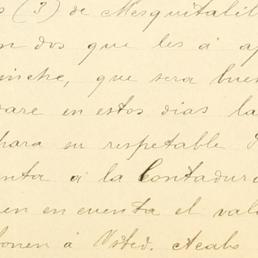 (3) de Mesquitalil
dos que les á ap
que sera bue
dare en estos dias la
para su respetable
enta á la Contadur
en en cuenta el val
onen á Usted. Acabo